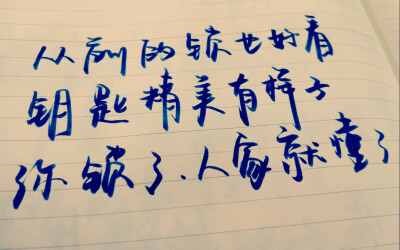 从前的锁也好看
钥匙精美有样子
你锁了、人家就懂了